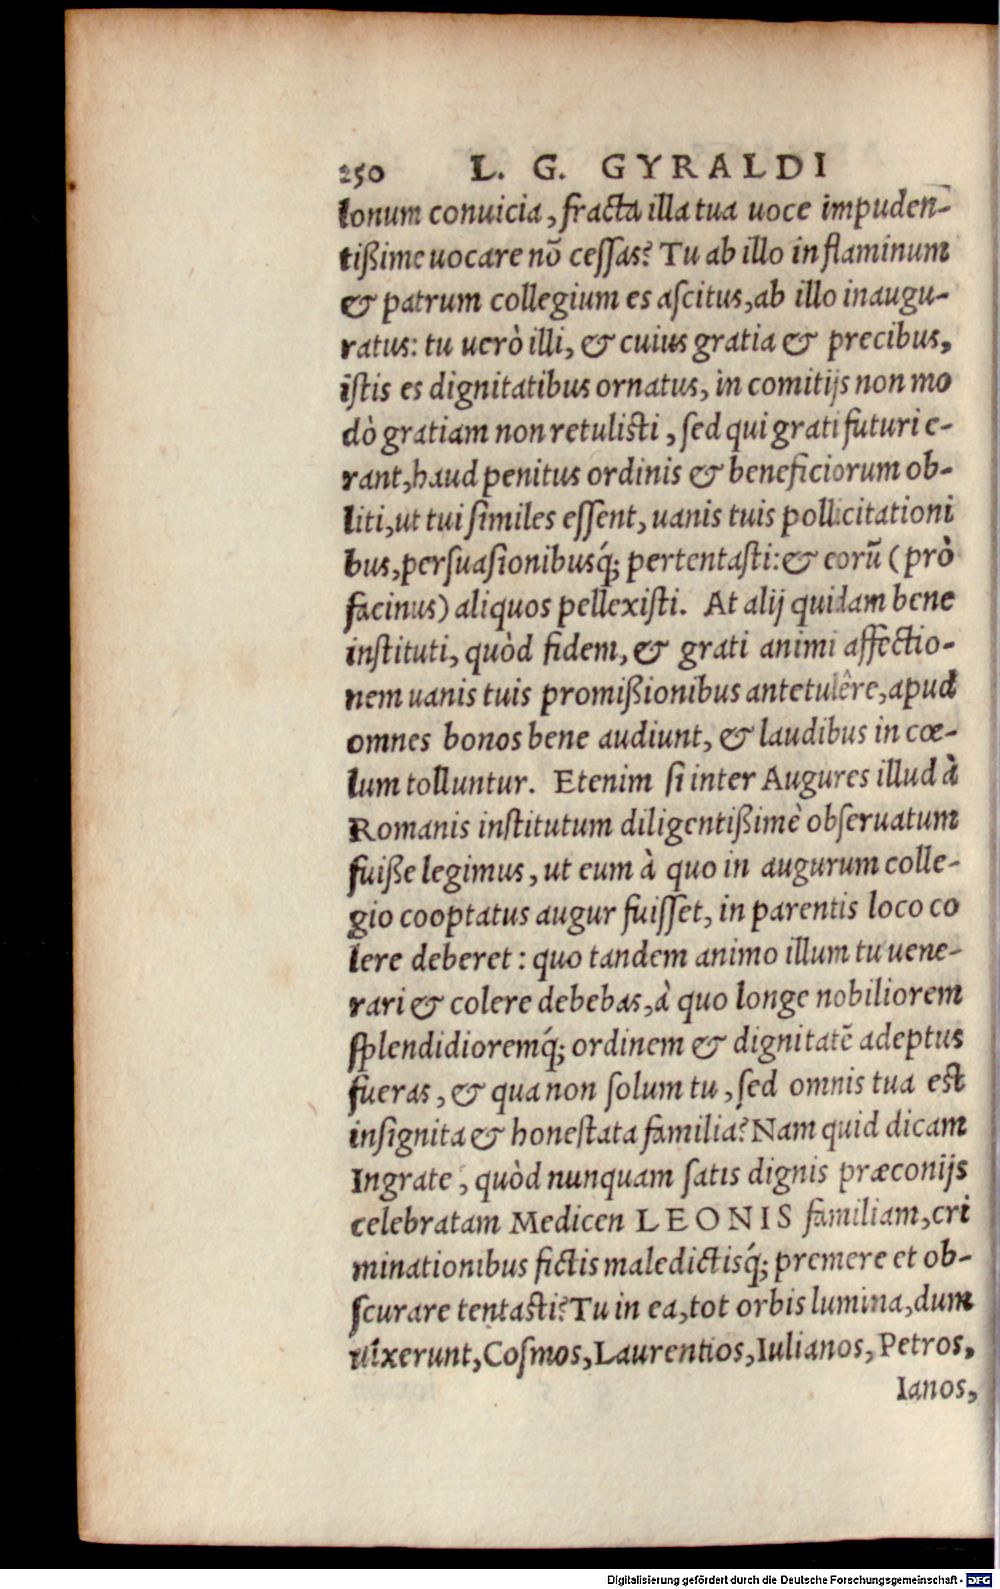 250 L. G. GYRALDI
lonum conuicia, fracta illa tua uoce impuden-
tißime uocare nō cessas? Tu ab illo in flaminum
& patrum collegium es ascitus, ab illo inaugu-
ratus: tu uerò illi, & cuius gratia & precibus,
istis es dignitatibus ornatus, in comitijs non mo
dò gratiam non retulisti, sed qui grati futuri e-
rant, haud penitus ordinis & beneficiorum ob-
liti, ut tui similes essent, uanis tuis pollicitationi
bus, persuasionibusq́; pertentasti: & eorū (prò
facinus) aliquos pellexisti. At alij quidam bene
instituti, quòd fidem, & grati animi affectio-
nem uanis tuis promißionibus antetulêre, apud
omnes bonos bene audiunt, & laudibus in cœ-
lum tolluntur. Etenim si inter Augures illud à
Romanis institutum diligentißimè obseruatum
fuiße legimus, ut eum à quo in augurum colle-
gio cooptatus augur fuisset, in parentis loco co
lere deberet: quo tandem animo illum tu uene-
rari & colere debebas, à quo longe nobiliorem
splendidioremq́; ordinem & dignitatē adeptus
fueras, & qua non solum tu, sed omnis tua est
insignita & honestata familia? Nam quid dicam
Ingrate, quòd nunquam satis dignis præconijs
celebratam Medicen LEONIS familiam, cri
minationibus fictis maledictisq́; premere et ob-
scurare tentasti? Tu in ea, tot orbis lumina, dum
uixerunt, Cosmos, Laurentios, Iulianos, Petros,
Ianos,
Digitalisierung gefördert durch die Deutsche Forschungsgemeinschaft - DFG